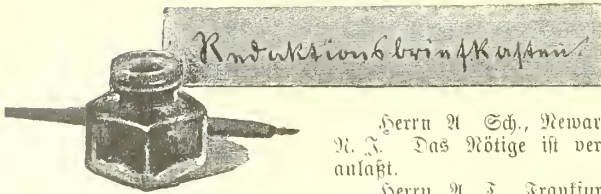 Redaktionsbriefkasten.
Herrn A Sch., Newar
N. J. Das Nötige ist ver
anlaßt.
Herrn A. J. Frankfur